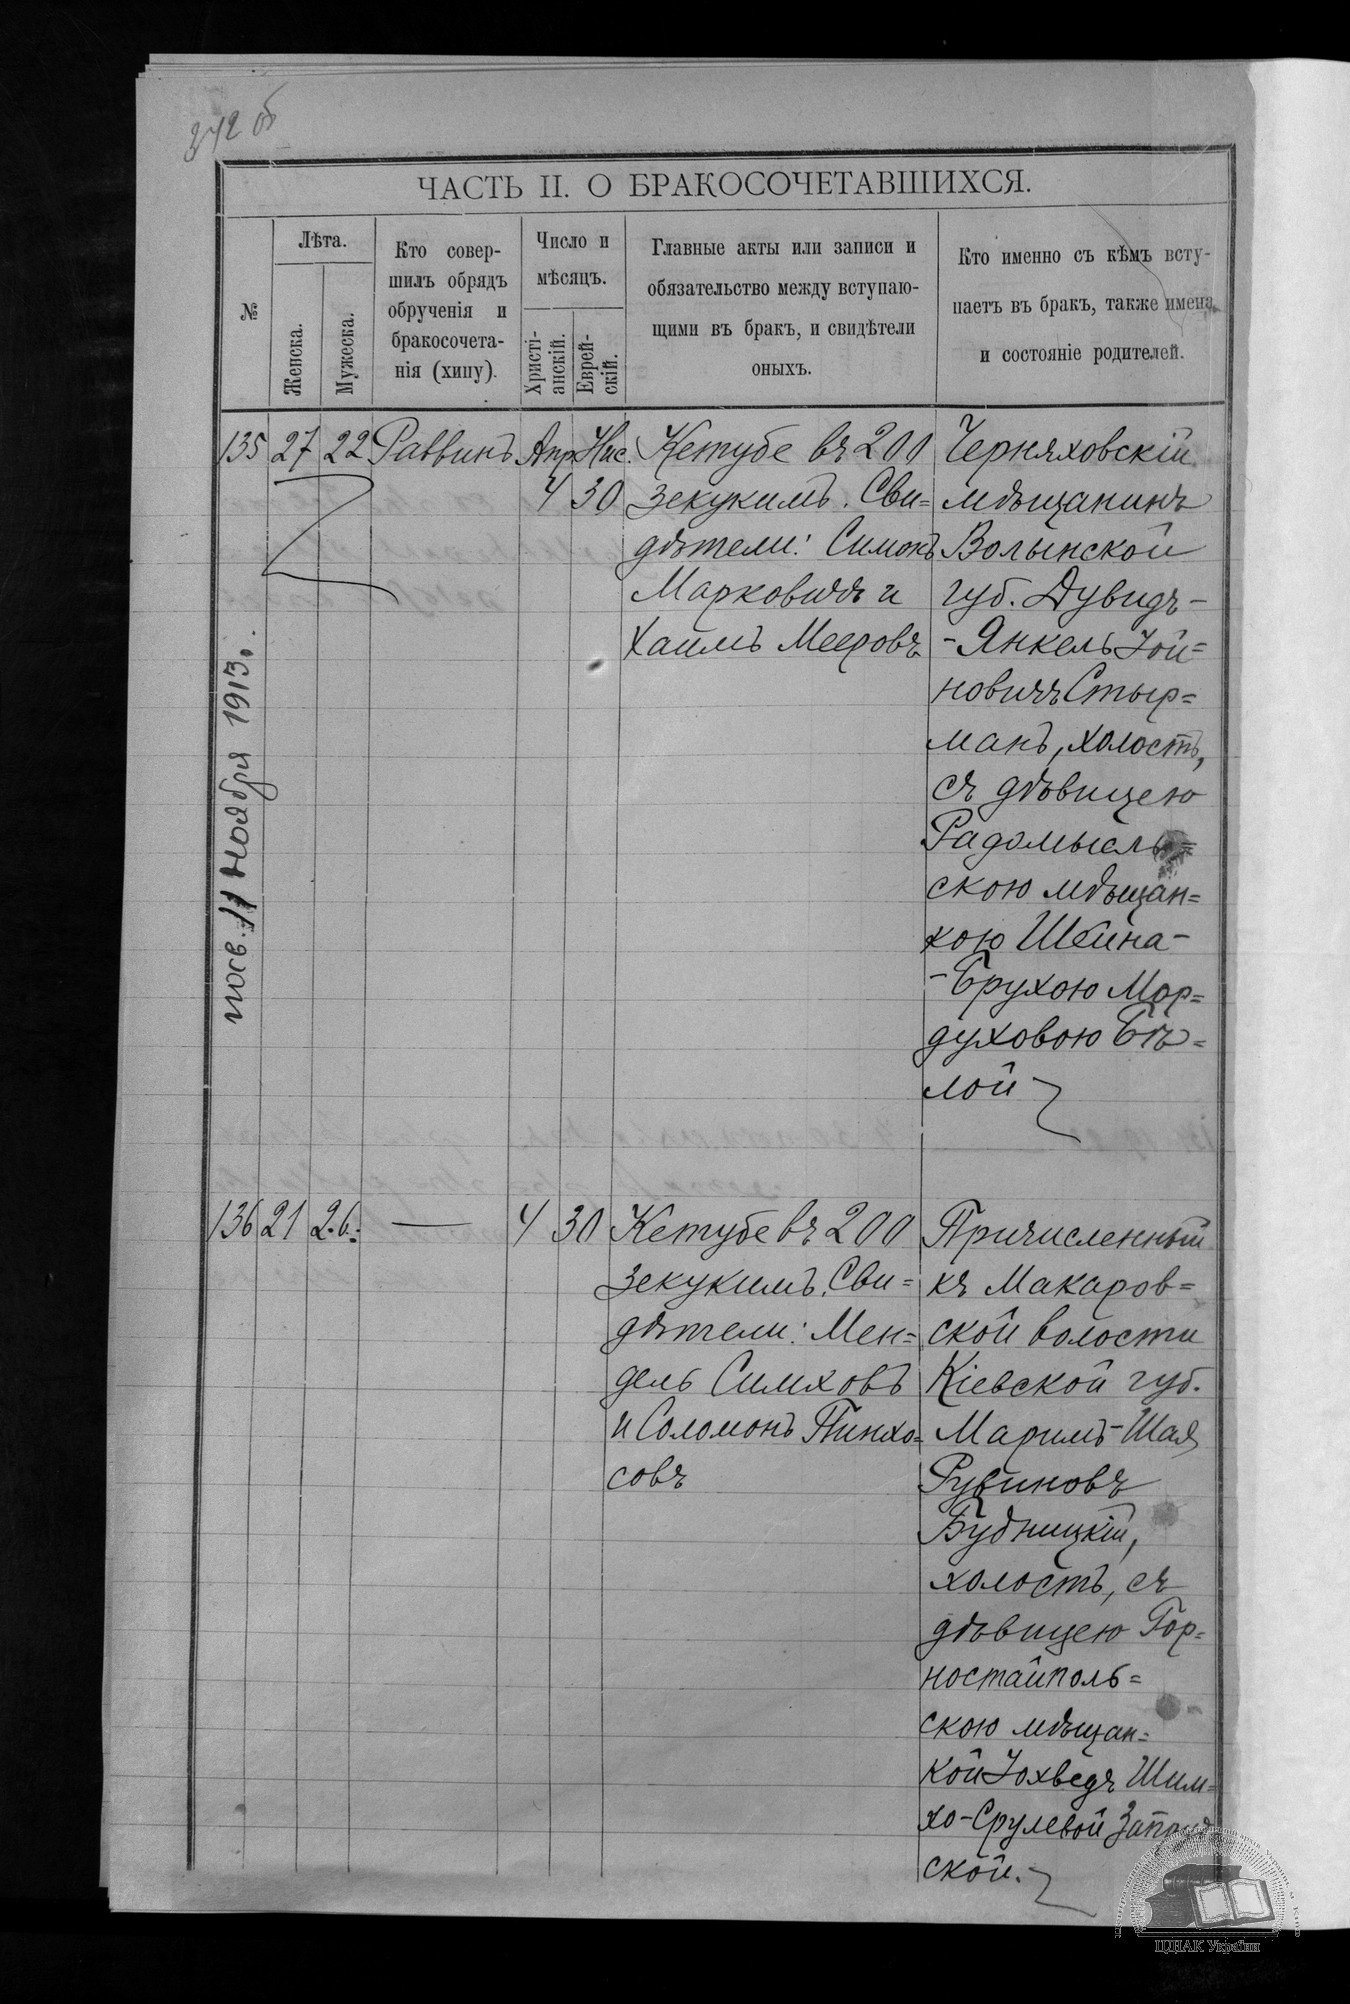 342 об
ЧАСТЬ II. О БРАКОСОЧЕТАВШИХСЯ.
№
Лѣта.
Женска.
Мужеска.
Кто совер-
шилъ обрядъ
обрученія и
бракосочета-
нія (хипу).
Число и
мѣсяцъ.
Христі-
анскій.
Еврей-
скій.
Главные акты или записи и
обязательство между вступаю-
щими въ бракъ, и свидѣтели
оныхъ.
Кто именно съ кѣмъ всту-
паетъ въ бракъ, также имена
и состояніе родителей.
135 27 22 Раввинъ Апр. Нис.
4 30
Кетубе въ 200
зекукимъ. Сви=
дѣтели: Симонъ
Марковичъ и
Хаимъ Мееровъ
Черняховскій
мѣщанинъ
Волынской
губ. Дувидъ-
-Янкель Іой=
новичъ Стыр=
манъ, холостъ,
съ дѣвицею
Радомысль=
скою мѣщан=
кою Шейна-
-Брухою Мор=
духовою Бѣ=
лой
11 Ноября 1913.
136 21 26 — 4 30
Кетубе въ 200
зекукимъ. Сви=
дѣтели: Мен=
дель Симховъ
и Соломонъ Пинхо=
совъ
Причисленный
къ Макаров=
ской волости
Кіевской губ.
Маримъ-Шая
Рувиновъ
Будницкій,
холостъ, съ
дѣвицею Гор=
ностайполь=
скою мѣщан=
кой Іохведъ Шим=
хо-Срулевой
ской.
ЦДІАК України